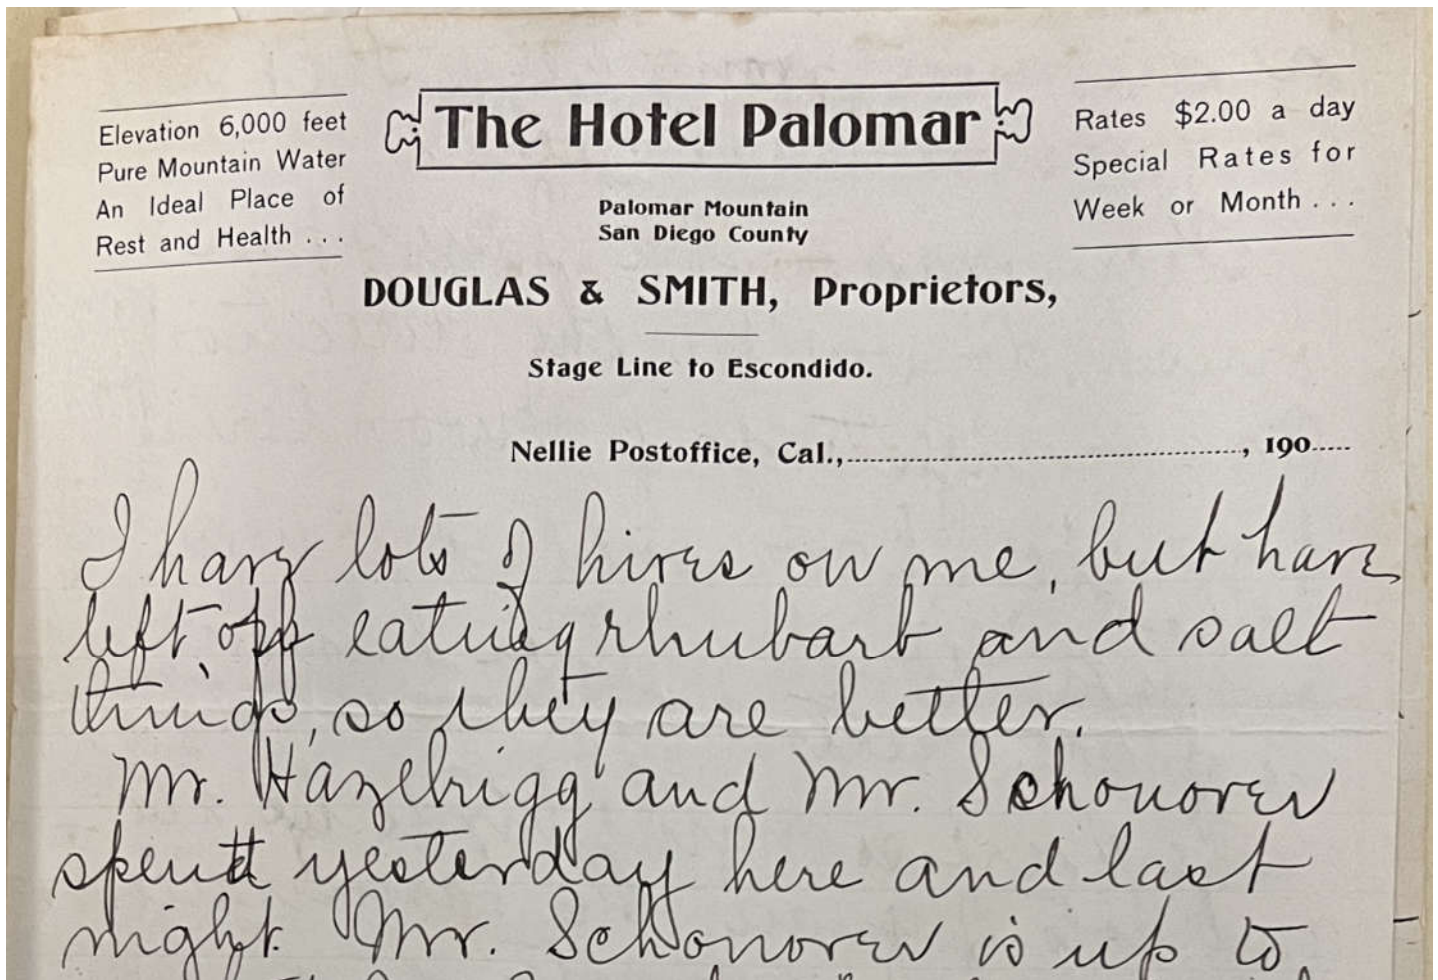 Elevation 6,000 feet
Pure Mountain Water
An Ideal Place of
Rest and Health ...
The Hotel Palomar
Palomar Mountain
San Diego County
Rates $2.00 a day
Special Rates for
Week or Month ...
DOUGLAS & SMITH, Proprietors,
Stage Line to Escondido.
Nellie Postoffice, Cal.,........................................................, 190.....
I have lots of hives on me, but have
left off eating rhubarb and salt
things, so they are better.
Mr. Hazelrigg and Mr. Schonover
spent yesterday here and last
night. Mr. Schonover is up to